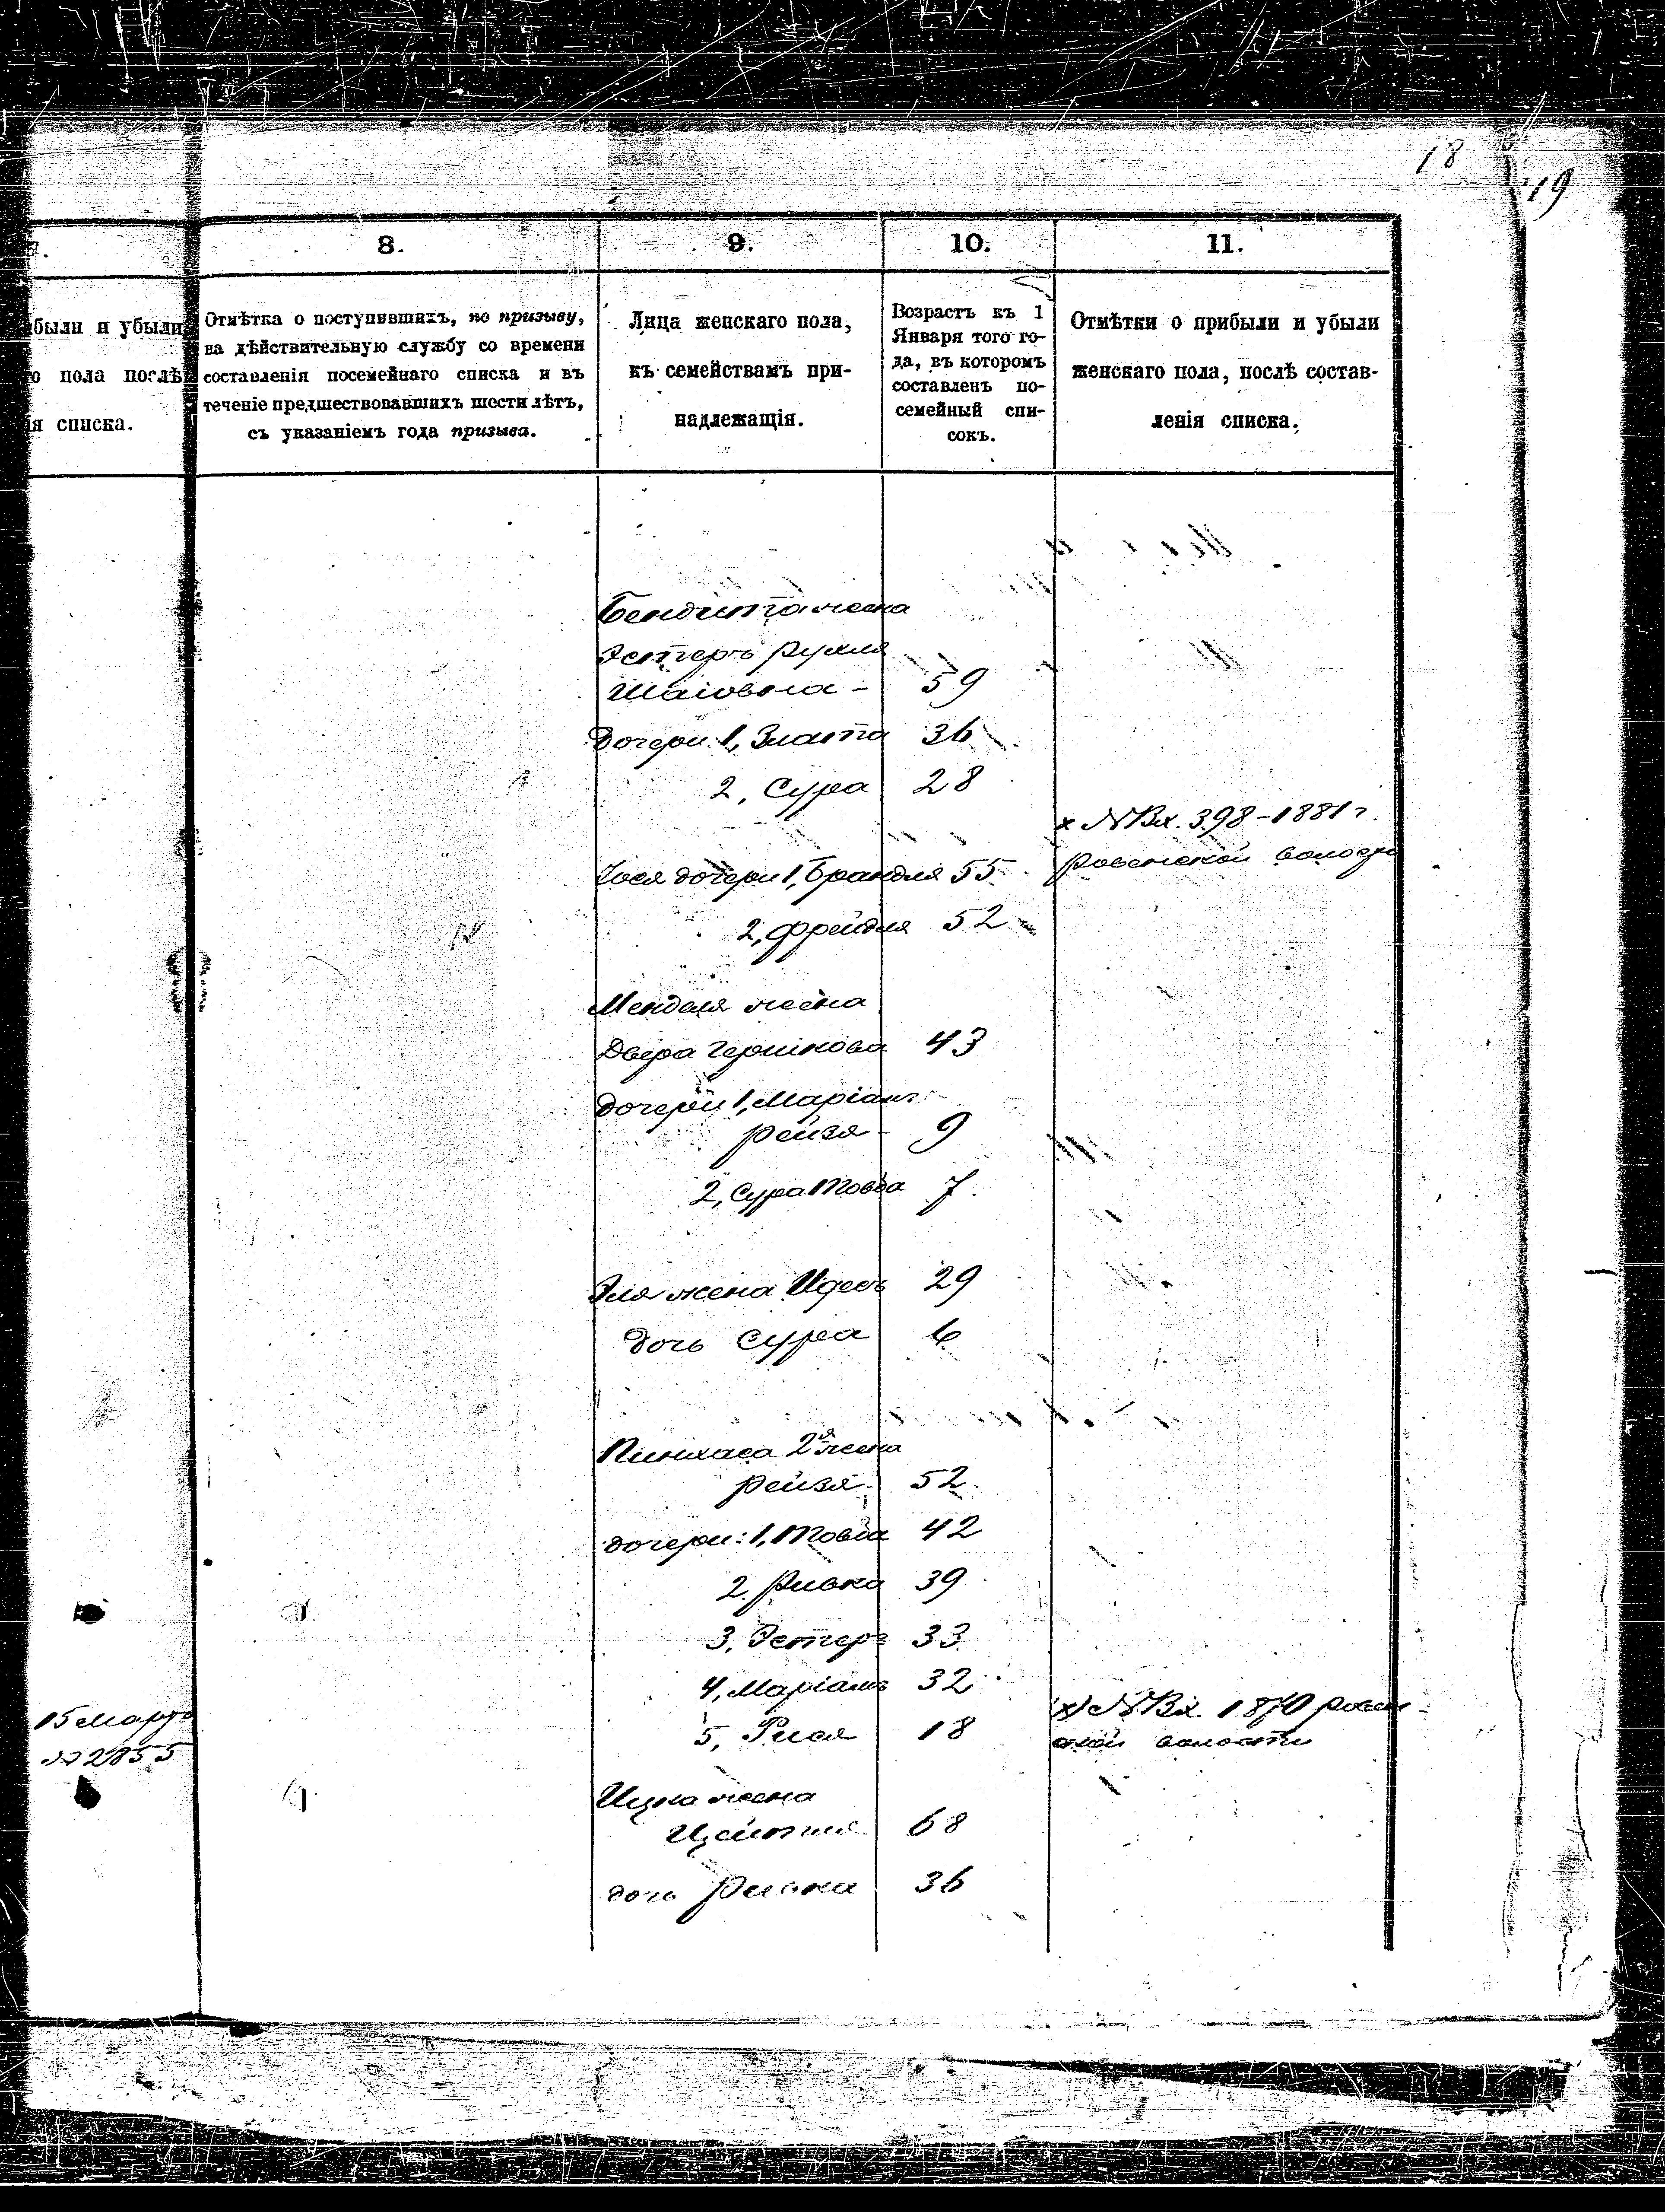 18
19
8.
9.
10.
11.
были и убыли
о пола послѣ
ія списка.
Отмѣтка о поступившихъ, по призыву,
на дѣйствительную службу со времени
составленія посемейнаго списка и въ
теченіе предшествовавшихъ шести лѣтъ,
съ указаніемъ года призыва.
Лица женскаго пола,
къ семействамъ при-
надлежащія.
Возрастъ къ 1
Января того го-
да, въ которомъ
составленъ по-
семейный спи-
сокъ.
Отмѣтки о прибыли и убыли
женскаго пола, послѣ состав-
ленія списка.
Бендита жена
Эстеръ Рухля
Шаіовна - 59
Дочери 1, Злата 36
2, Сура 28
х №Вх. 398-1881 г.
Ровенской волости
дочери 1, Брандля 55
2, Фрейдля 52
Менделя жена
Двера Гершкова 43
дочери 1, Маріамъ
Рейзя 9
2, Сура Товба 7.
Эля жена Идесь 29
дочь Сура 6
Пинхаса 2я жена
Рейзя 52
дочери: 1, Товба 42
2 Ривка 39
3, Эстеръ 33
4, Маріамъ 32
5, Рися 18
х) №Вх. 1870 Ровен-
ской волости
15 Марта
№ 2855
Ицка жена
68
дочь Ривка 36